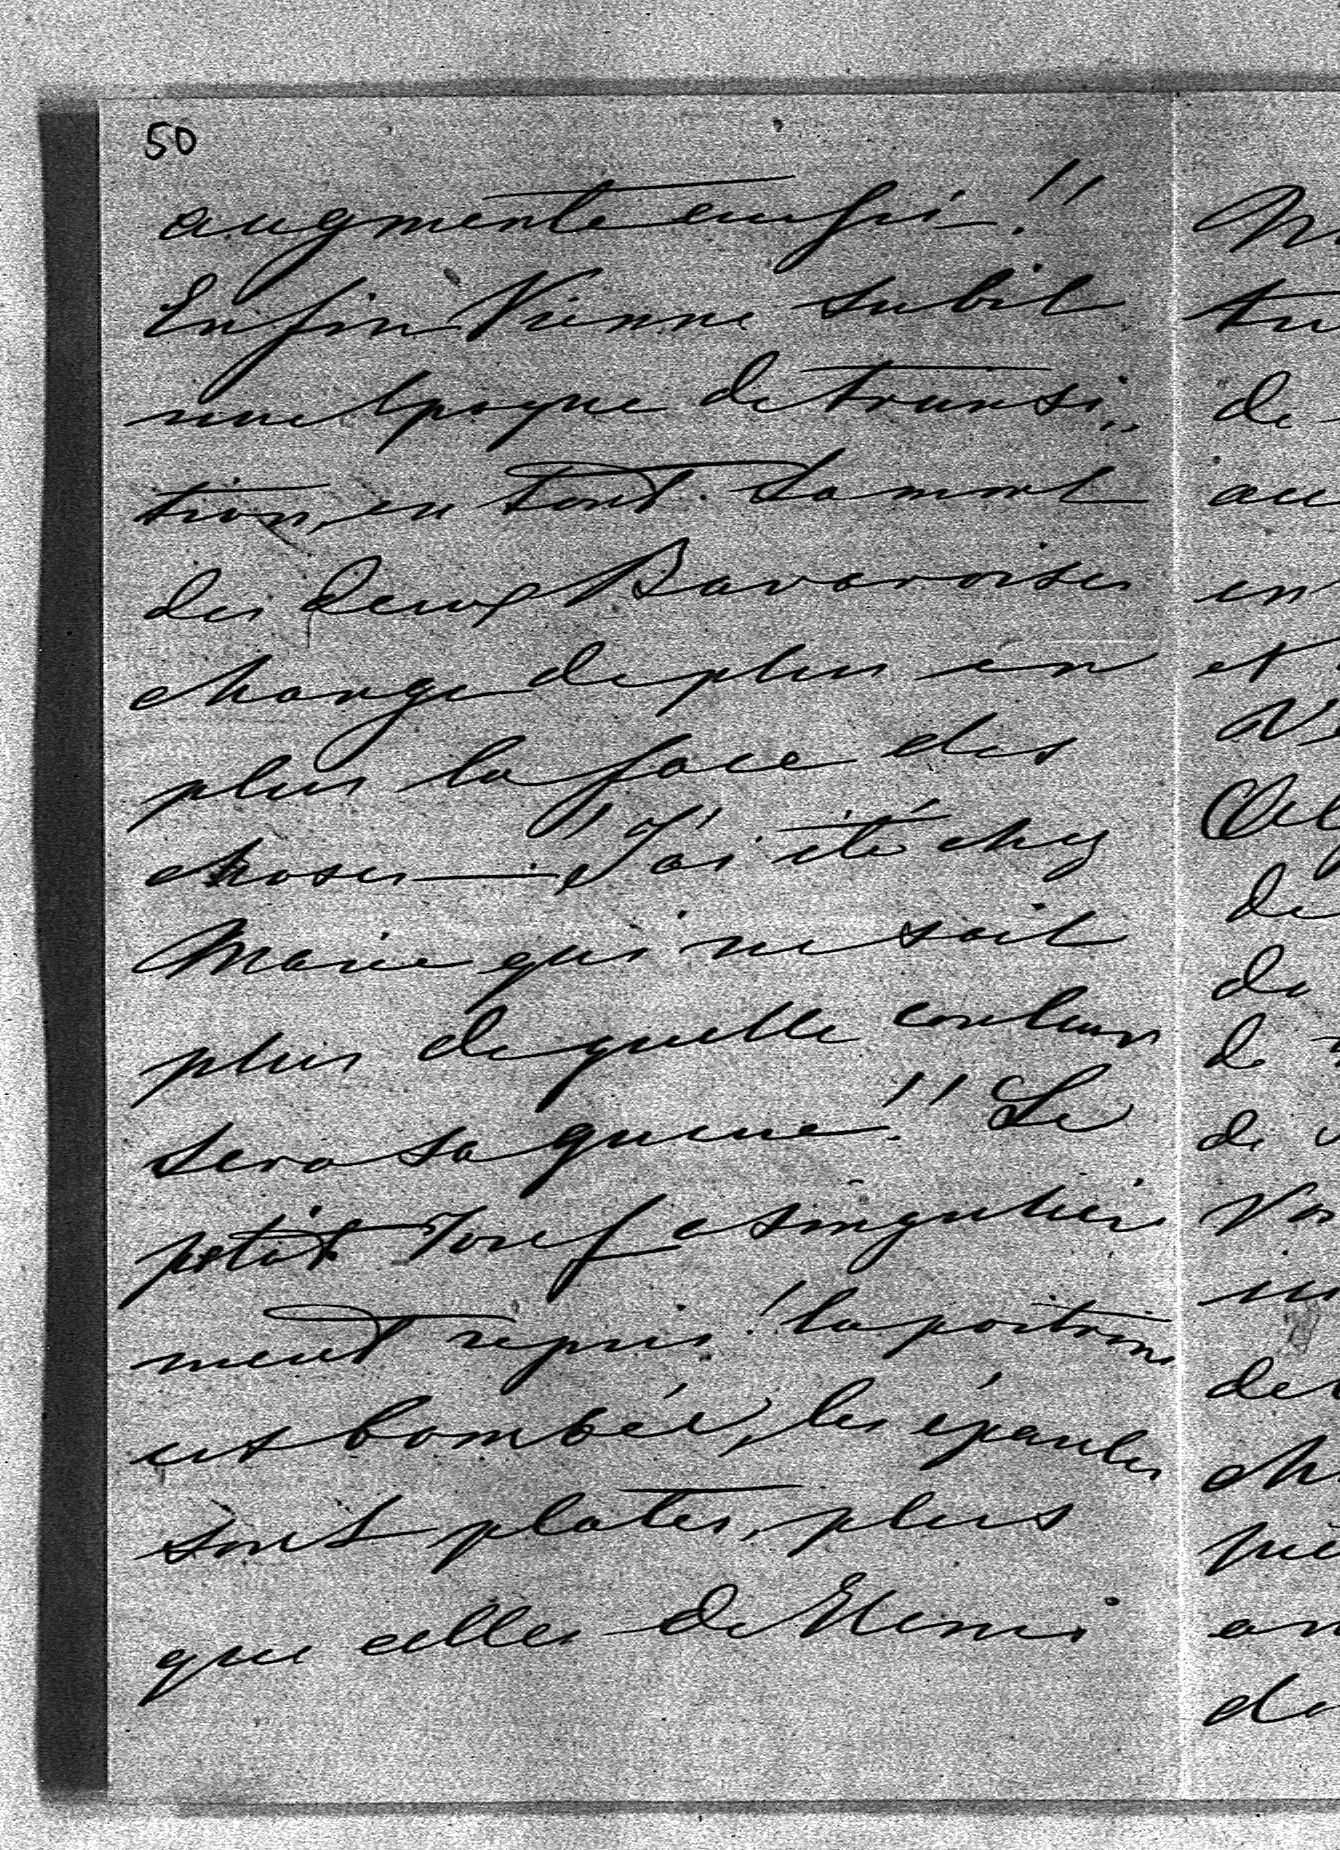 50
augmente aussi!!
Enfin Vienne subit
une époque de transi„
tion, en tout. La mort
des deux Bavaroises
change de plus en
plus la face des
choses — J'ai été chez
Marie qui ne sait
plus de quelle couleur
sera sa queue!! Le
petit Josef a singulière
ment repris! la poitrine
est bombée, les épaules
sont plates, plus
que celles de